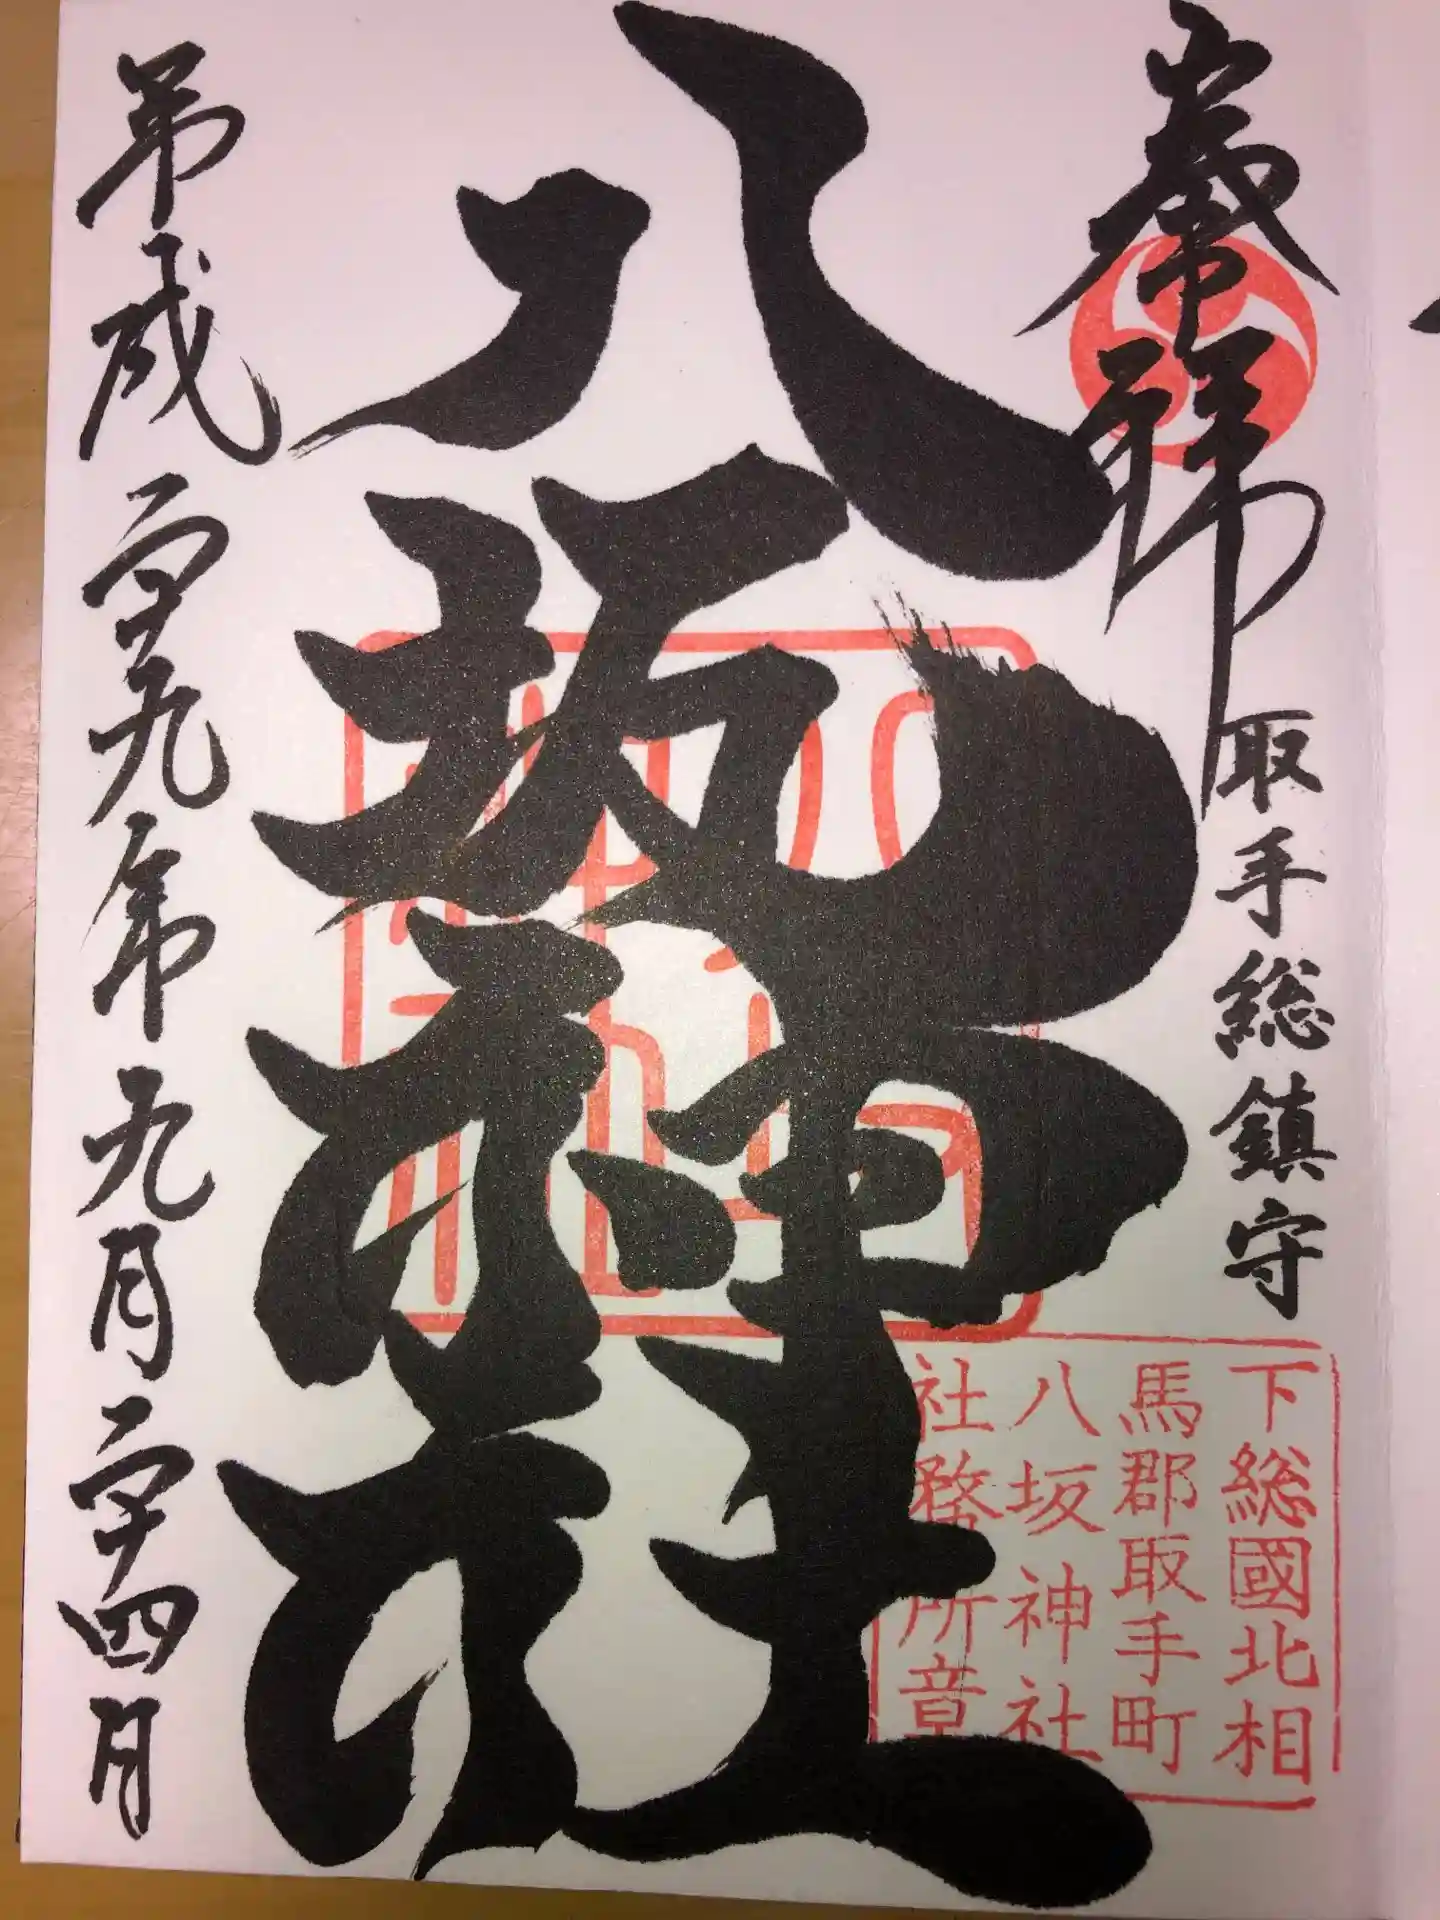 奉拝
取手総鎮守
八坂神社
平成二十九年九月二十四日
下総國北相
馬郡取手町
八坂神社
社務所章